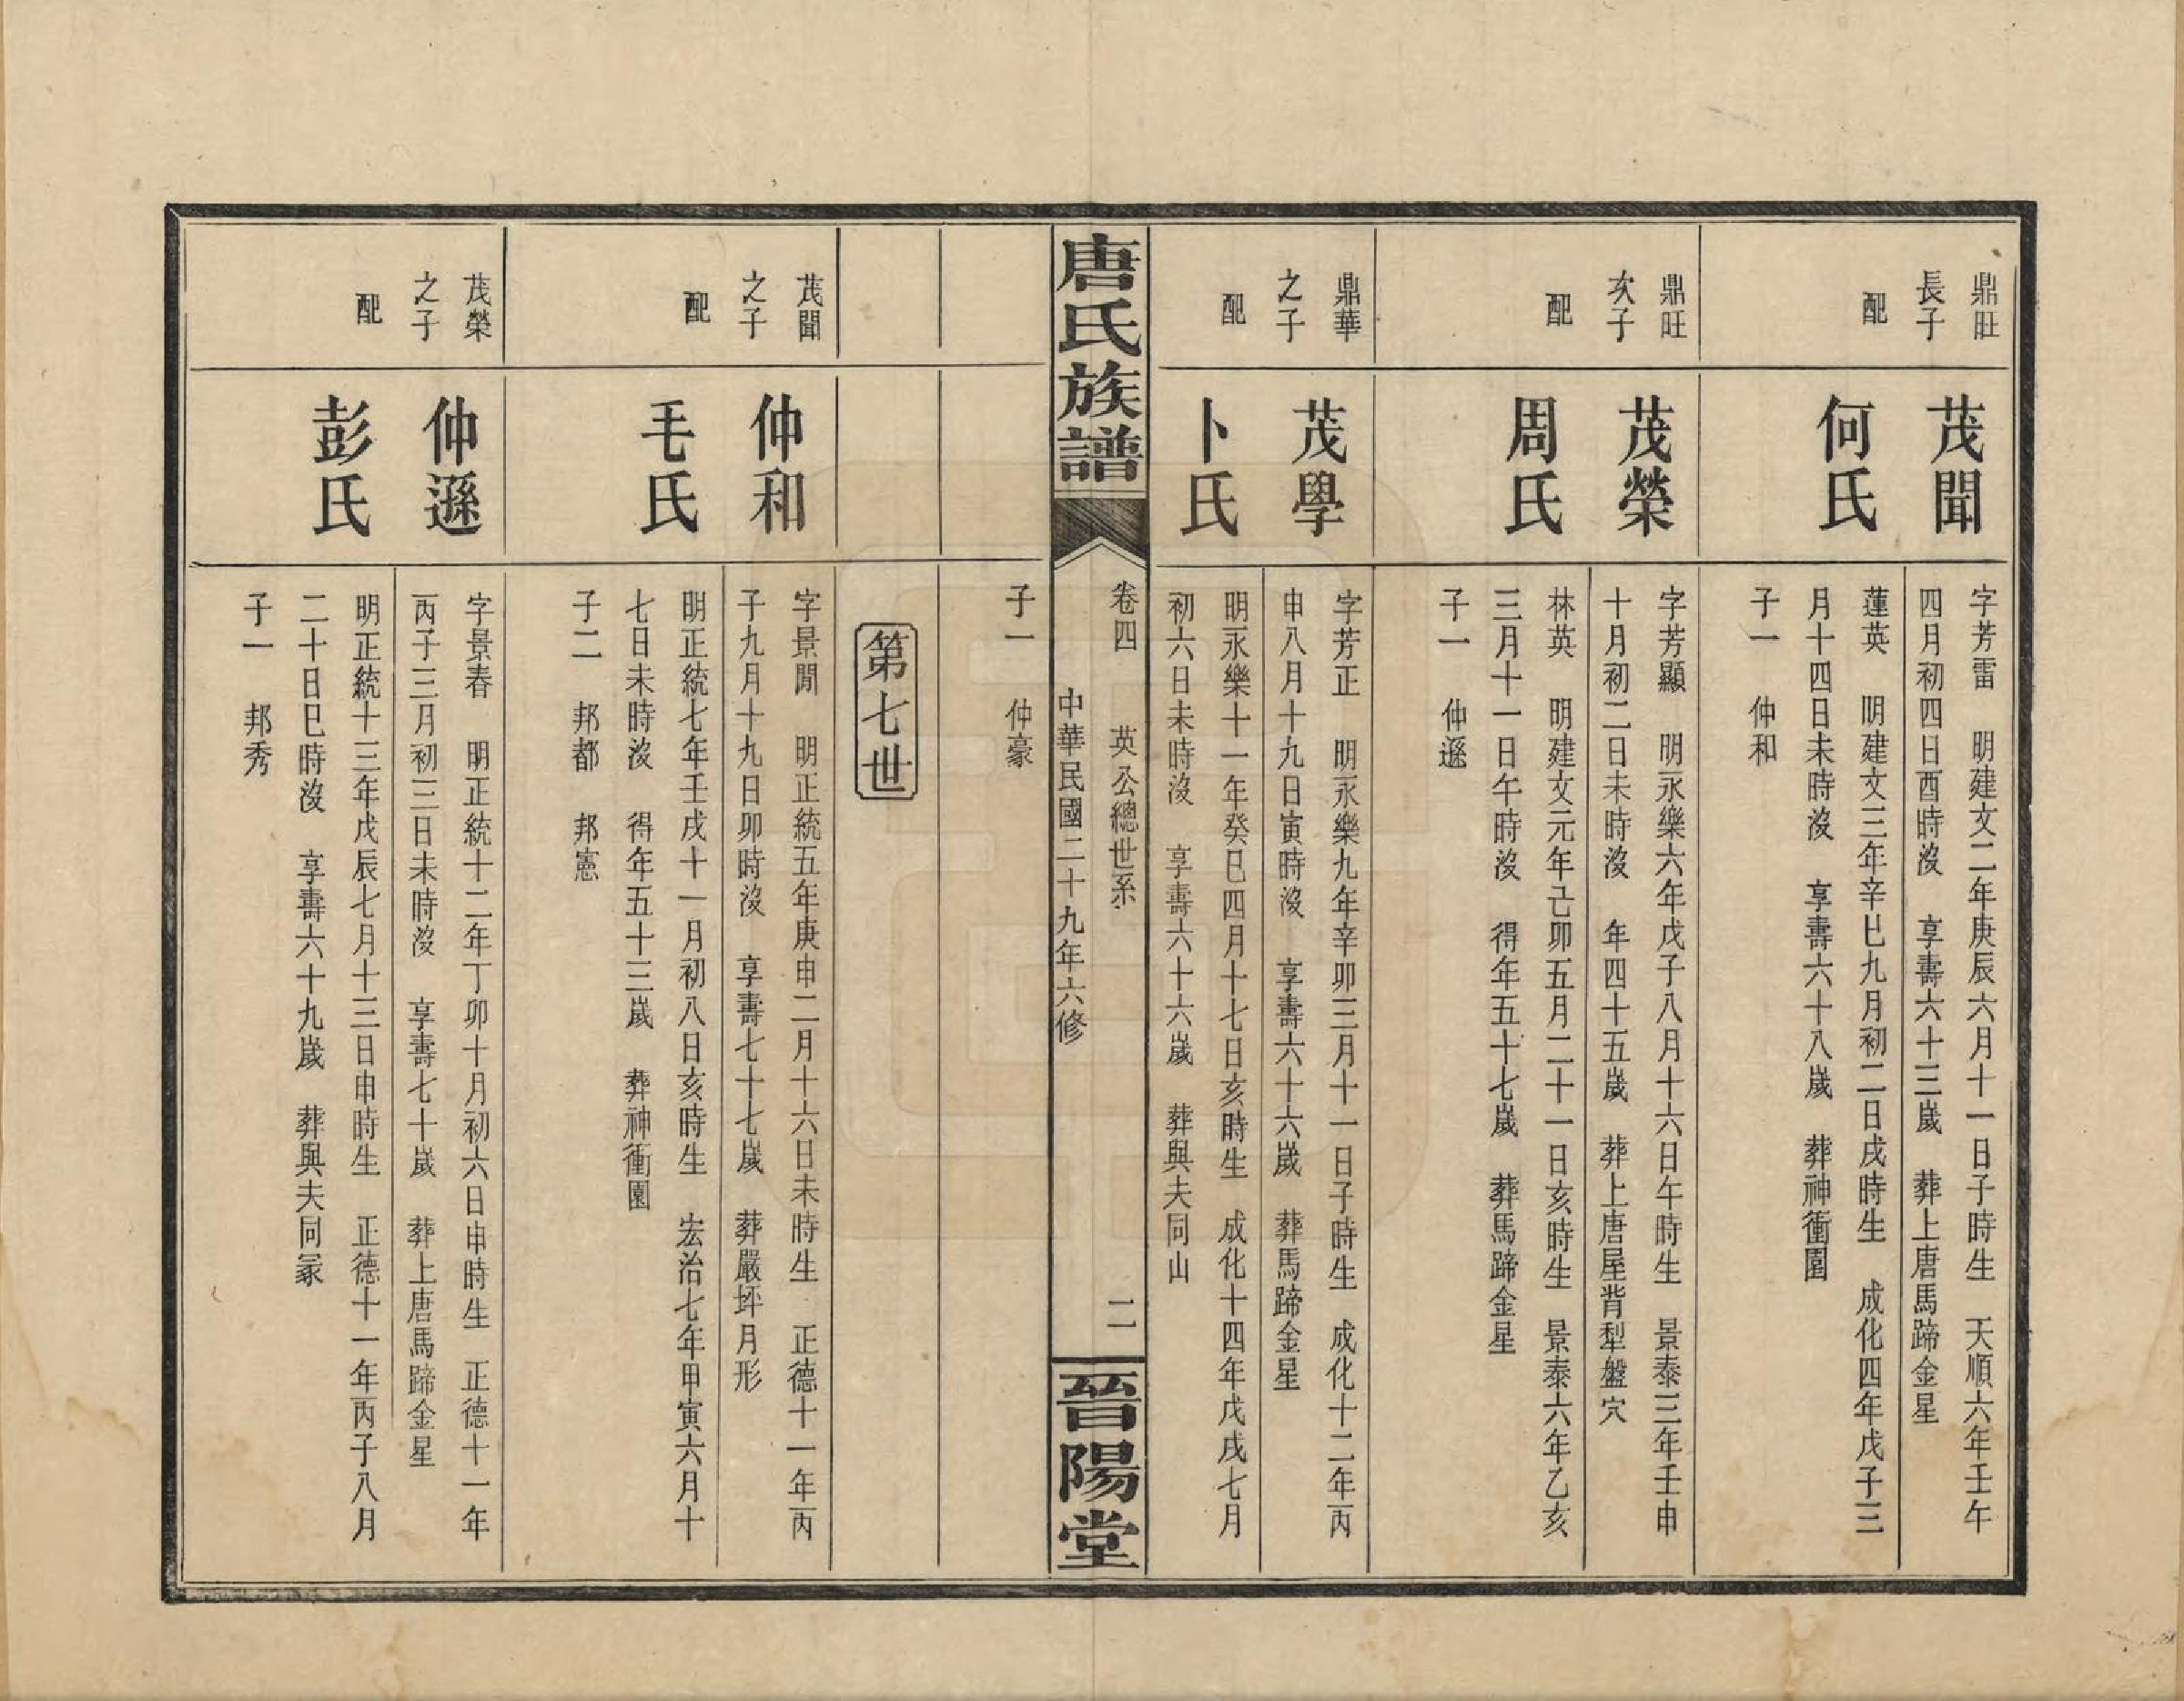 鼎旺
長子
配
茂聞
何氏
字芳雷 明建文二年庚辰六月十一日子時生 天順六年壬午
四月初四日酉時沒 享壽六十三歲 葬上唐馬蹄金星
蓮英 明建文三年辛巳九月初二日戌時生 成化四年戊子三
月十四日未時沒 享壽六十八歲 葬神衝園
子一 仲和
鼎旺
次子
配
茂榮
周氏
字芳顯 明永樂六年戊子八月十六日午時生 景泰三年壬申
十月初二日未時沒 年四十五歲 葬上唐屋背犁盤穴
林英 明建文元年己卯五月二十一日亥時生 景泰六年乙亥
三月十一日午時沒 得年五十七歲 葬馬蹄金星
子一 仲遜
鼎華
之子
配
茂學
卜氏
字芳正 明永樂九年辛卯三月十一日子時生 成化十二年丙
申八月十九日寅時沒 享壽六十六歲 葬馬蹄金星
明永樂十一年癸巳四月十七日亥時生 成化十四年戊戌七月
初六日未時沒 享壽六十六歲 葬與夫同山
唐氏族譜
卷四 英公總世系
中華民國二十九年六修
二
晉陽堂
子一 仲豪
第七世
茂聞
之子
配
仲和
毛氏
字景閒 明正統五年庚申二月十六日未時生 正德十一年丙
子九月十九日卯時沒 享壽七十七歲 葬嚴坪月形
明正統七年壬戌十一月初八日亥時生 宏治七年甲寅六月十
七日未時沒 得年五十三歲 葬神衝園
子二 邦都 邦憲
茂榮
之子
配
仲遜
彭氏
字景春 明正統十二年丁卯十月初六日申時生 正德十一年
丙子三月初三日未時沒 享壽七十歲 葬上唐馬蹄金星
明正統十三年戊辰七月十三日申時生 正德十一年丙子八月
二十日巳時沒 享壽六十九歲 葬與夫同冢
子一 邦秀